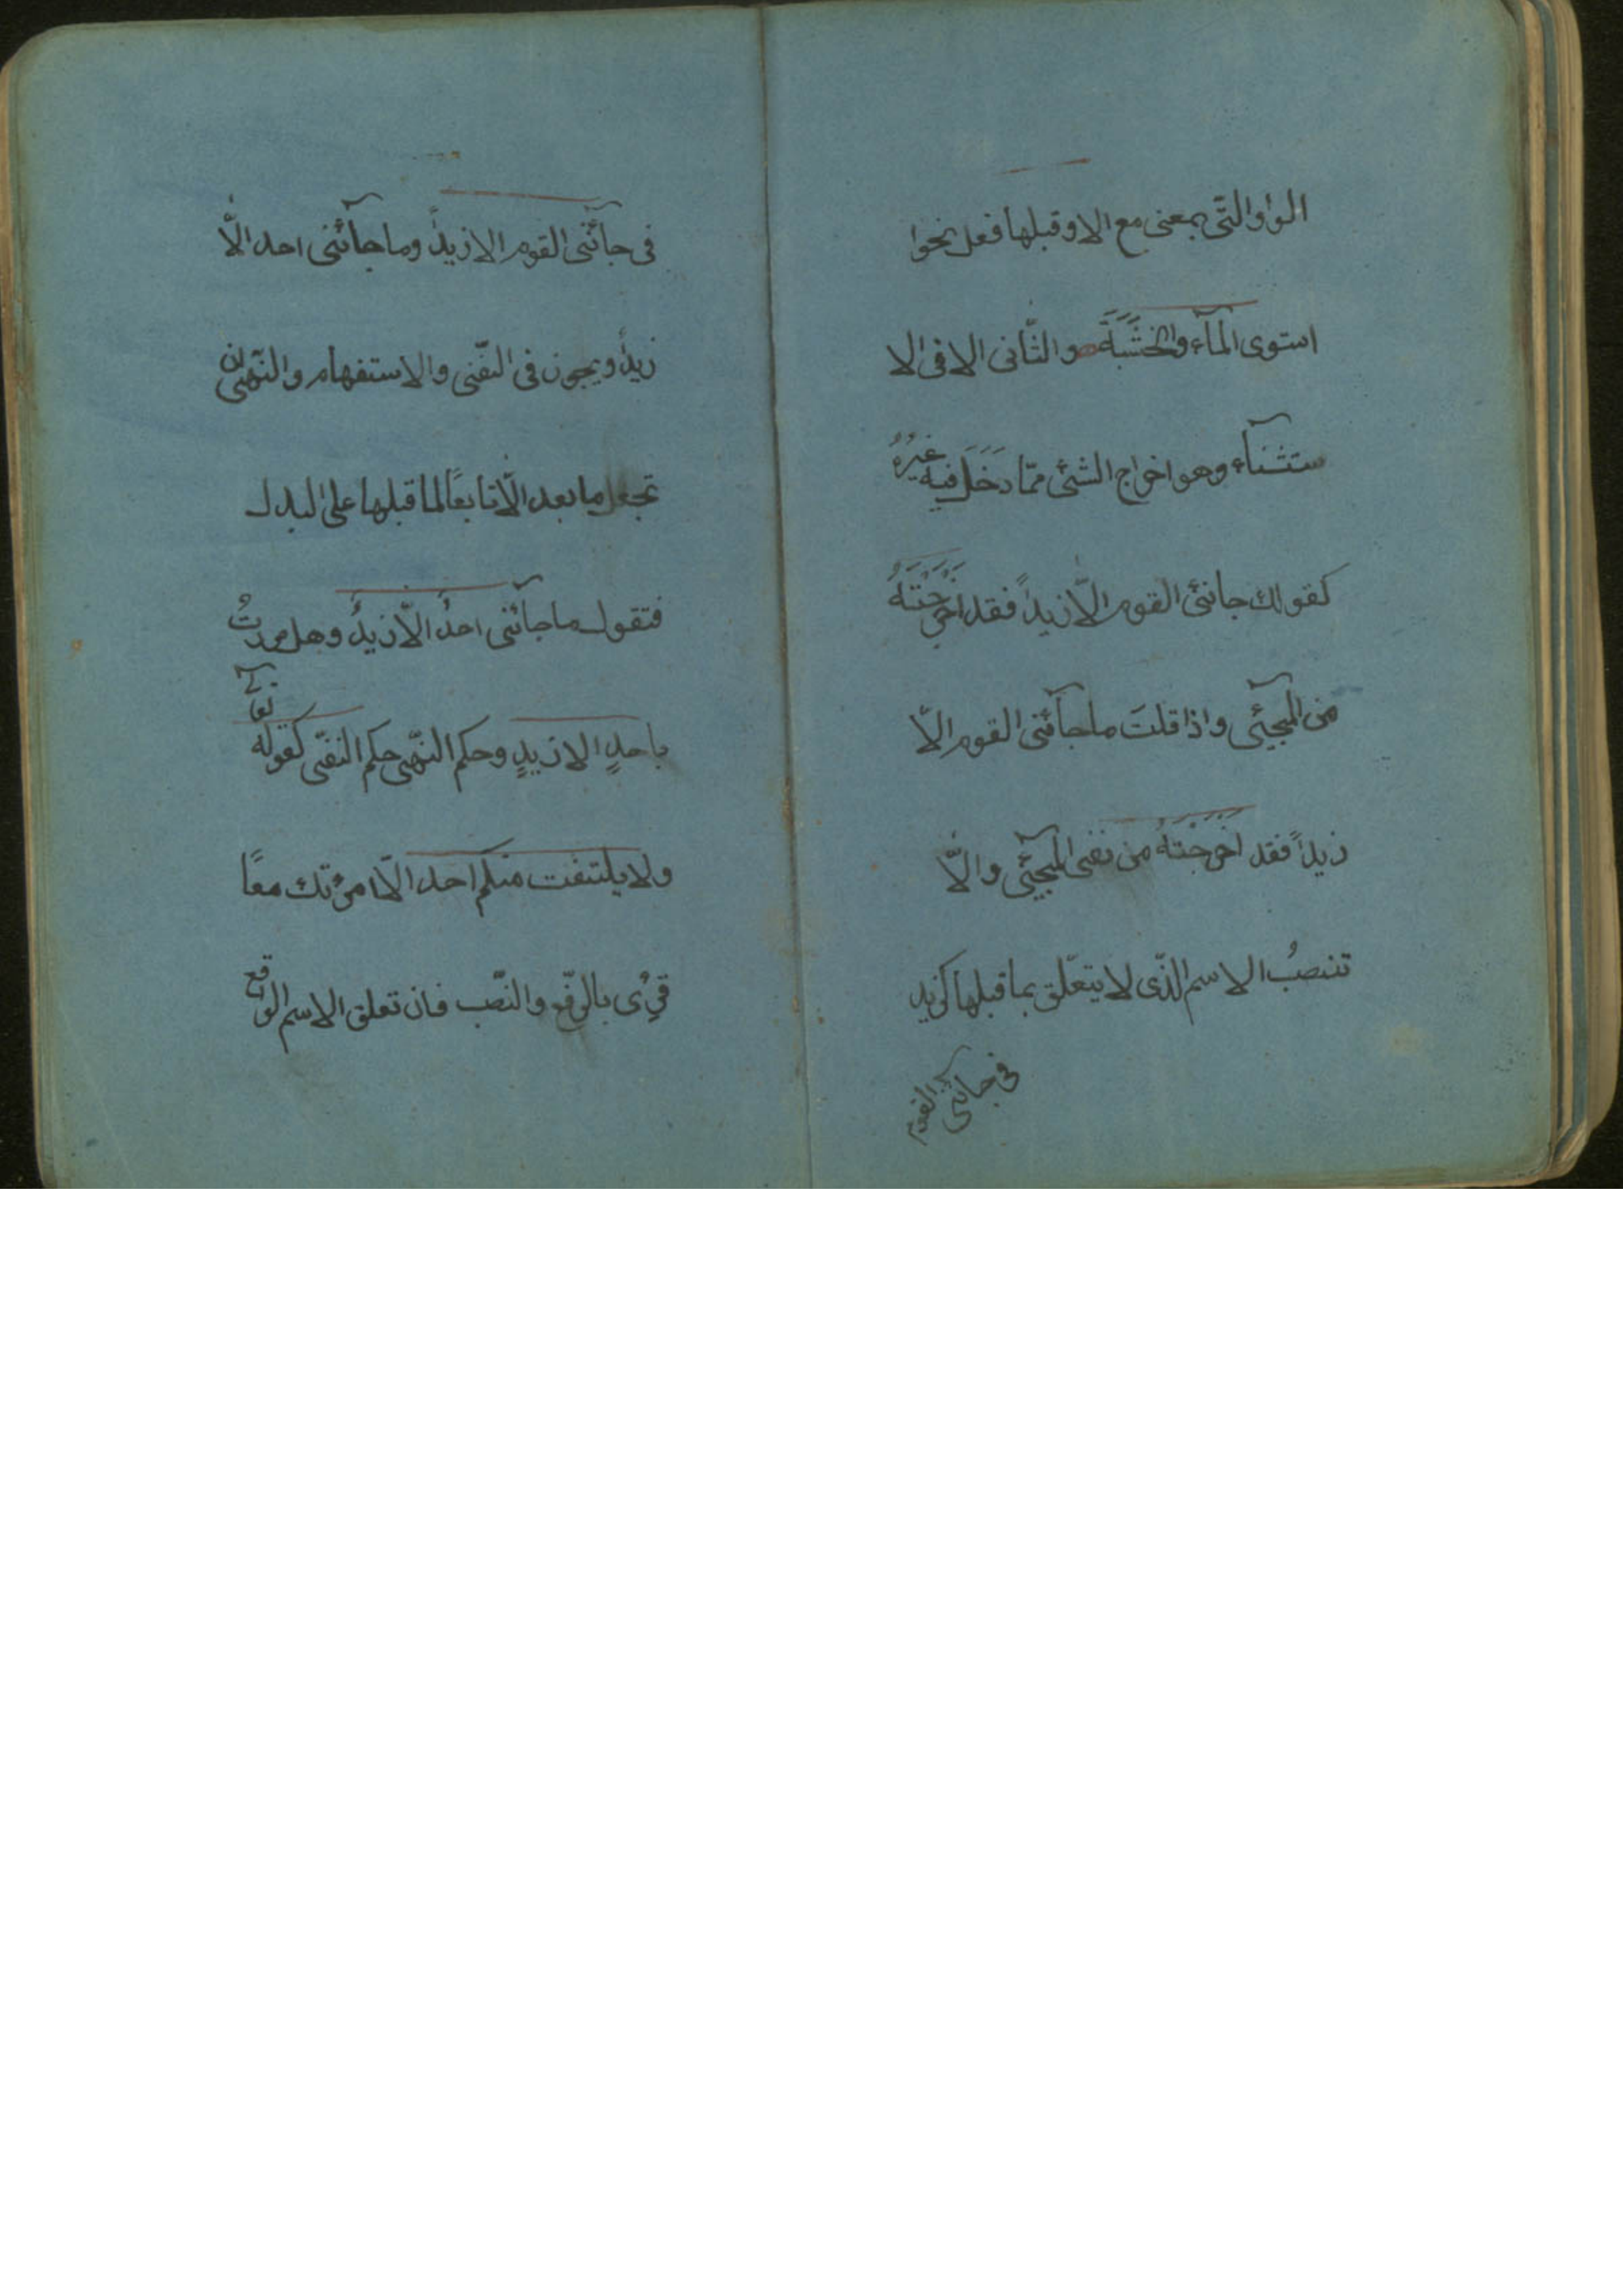 الواو التّى بمعنى مع الا وقبلها فعل نحوا
استوى المآء والخَشَبَةَ والثّانى الا فى الا
ستثنآء وهو اخراج الشئ ممّا دَخَلَ فيه غيرُهُ
كقولك جائنى القوم الّا زيداً فقد اخرَجْتَهُ
من المجيئى واذا قلتَ ما جآئنى القوم الّا
زيداً فقد اَخرَجْتَهُ من نفى المجيئى والّا
تنصبُ الاسم الذّى لا يتعلّق بما قبلها كزيد
فى جائنى القوم
فى جآئنى القوم الا زيداً وما جآئنى احد الّا
زيداً ويجوز فى النّفى والاستفهام والنّهى ان
تجعل ما بعد الّا تابعًا لما قبلها على البدل
فتقول ما جآئنى احدٌ الّا زيدٌ وهل مررتُ
باحدٍ الا زيدٍ وحكم النّهى حكم النّفى كقوله تعالى
ولا يلتفت منكم احد الّا امرئتك معًا
قرِئ بالرّفع والنّصب فان تعلق الاسم الواقع